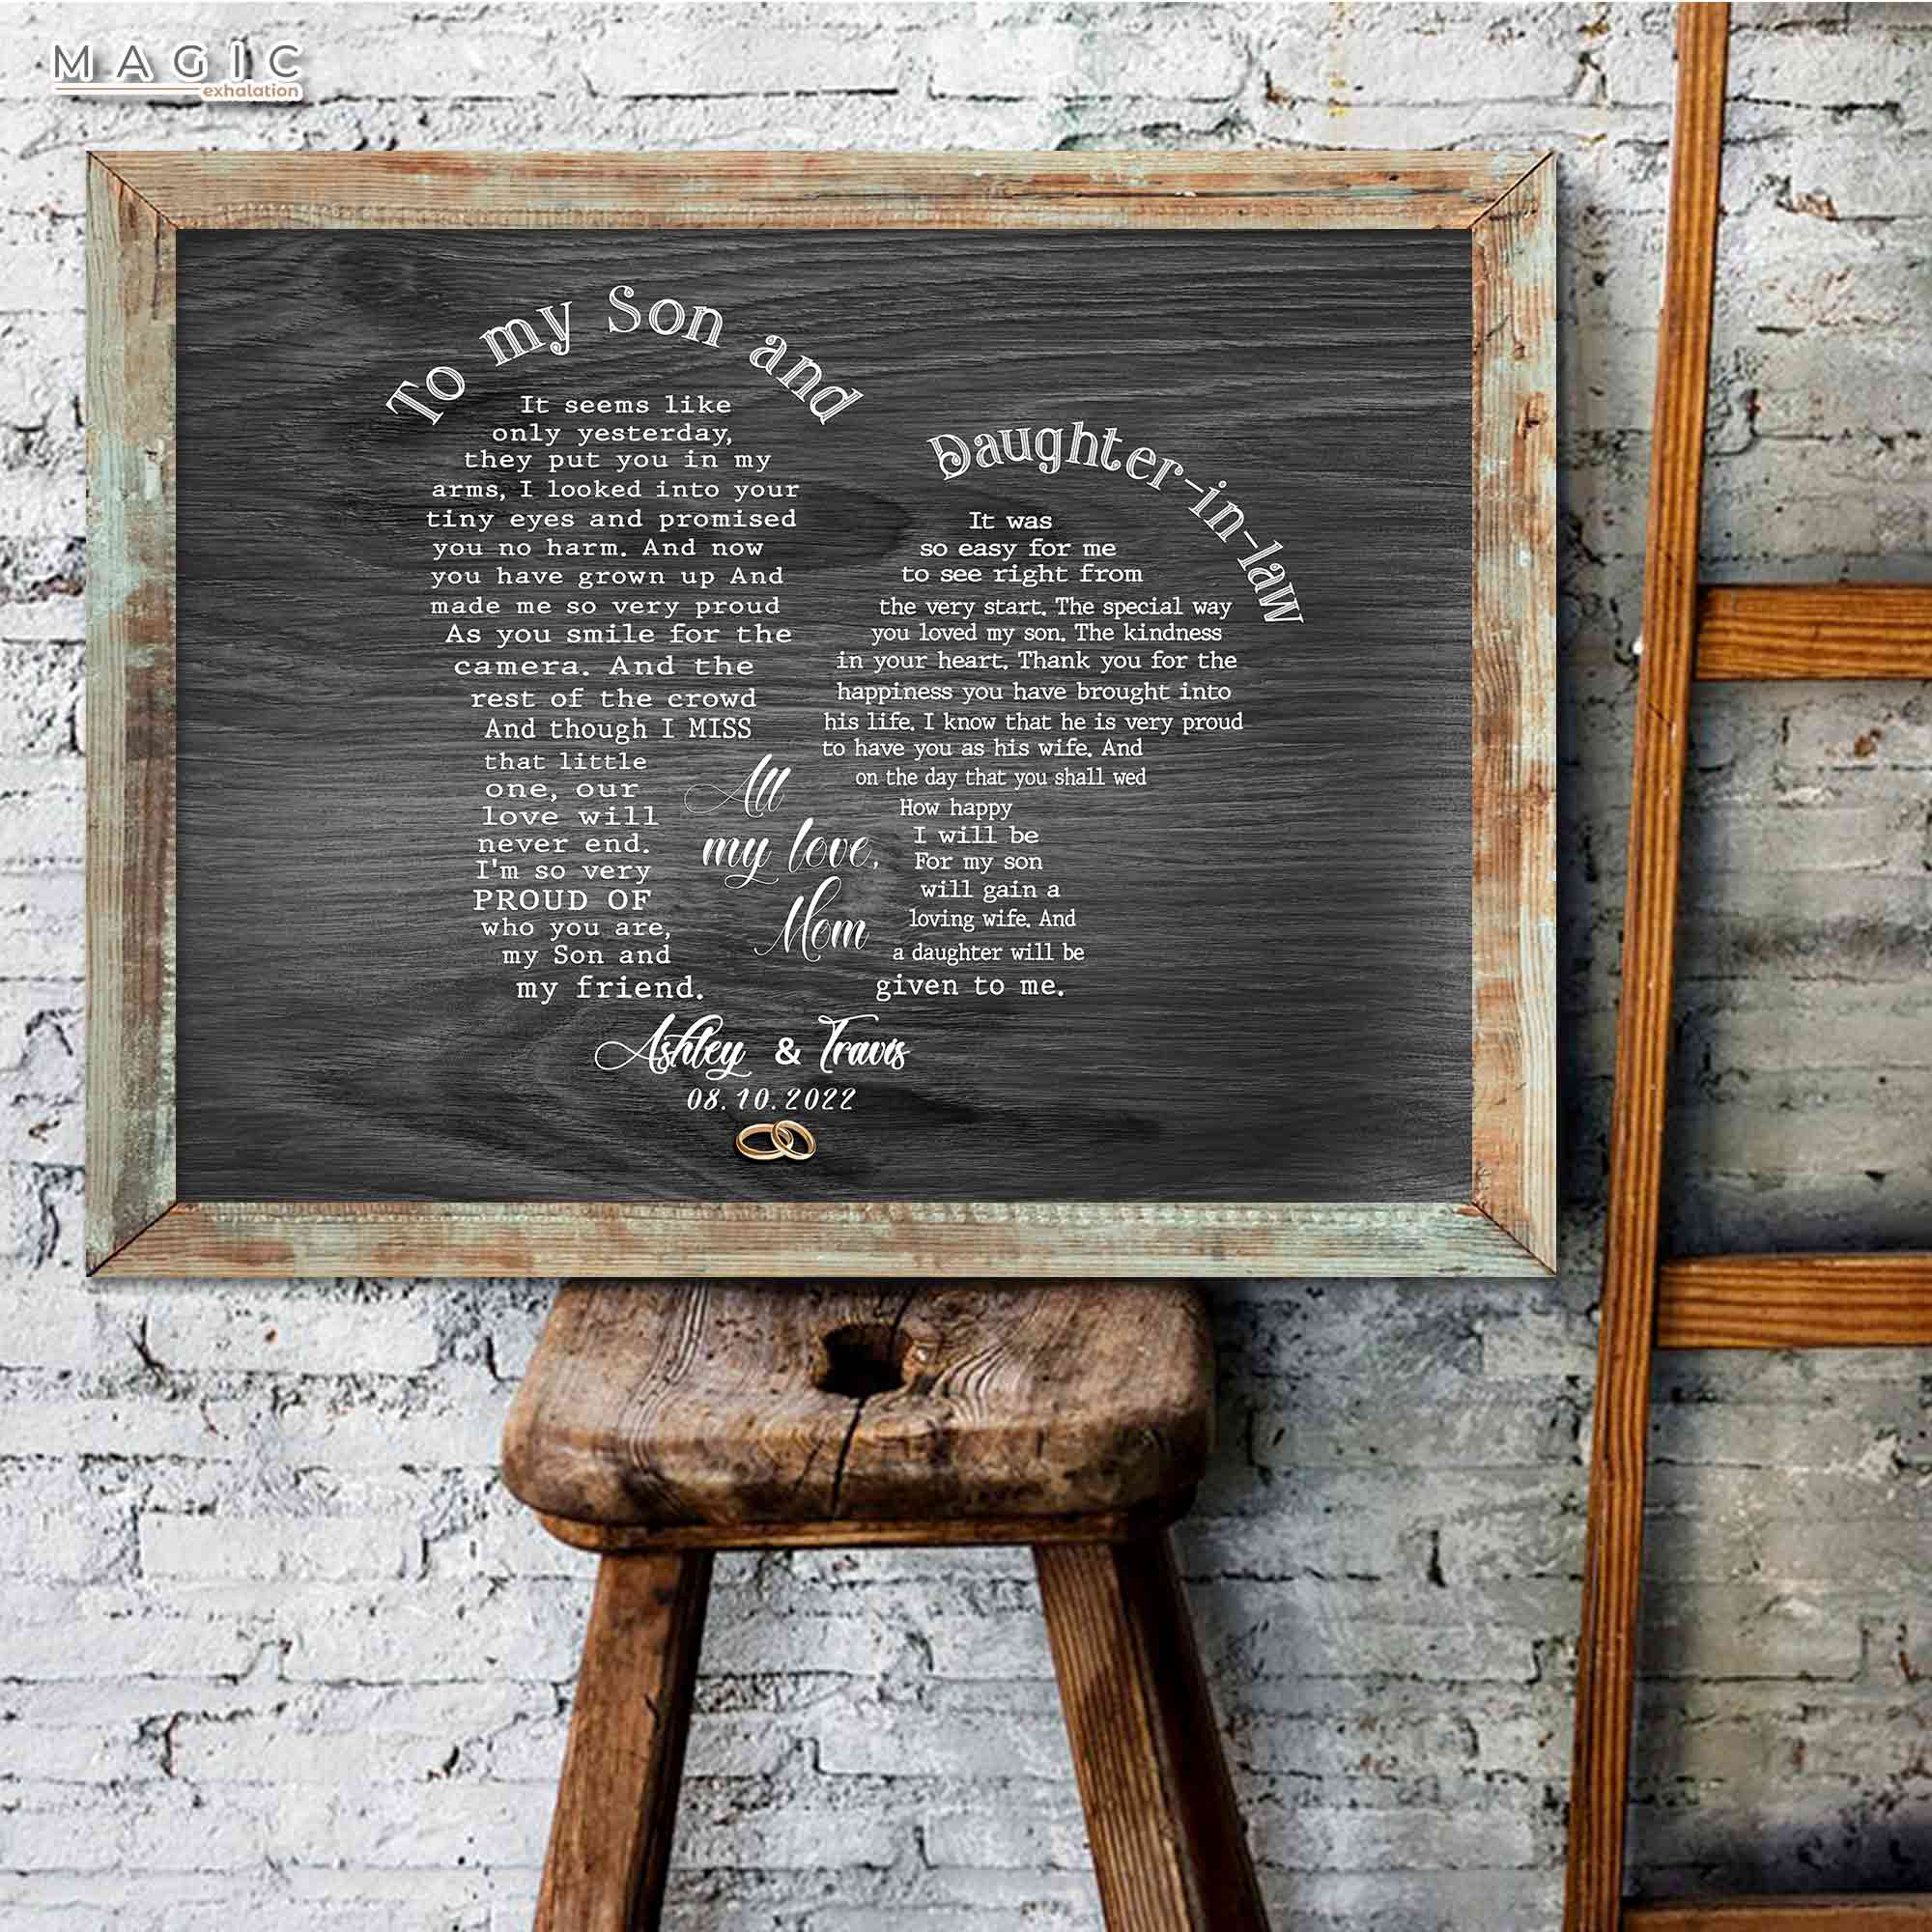 MAGIC
exhalation
To my Son and
It seems like
only yesterday,
they put you in my
arms, I looked into your
tiny eyes and promised
you no harm. And now
you have grown up And
made me so very proud
As you smile for the
camera. And the
rest of the crowd
And though I MISS
that little
one, our
love will
never end.
I'm so very
PROUD OF
who you are,
my Son and
my friend.
Daughter-in-law
It was
so easy for me
to see right from
the very start. The special way
you loved my son. The kindness
in your heart. Thank you for the
happiness you have brought into
his life. I know that he is very proud
to have you as his wife. And
on the day that you shall wed
How happy
I will be
For my son
will gain a
loving wife. And
a daughter will be
given to me.
All
my love,
Mom
Ashley & Travis
08.10.2022